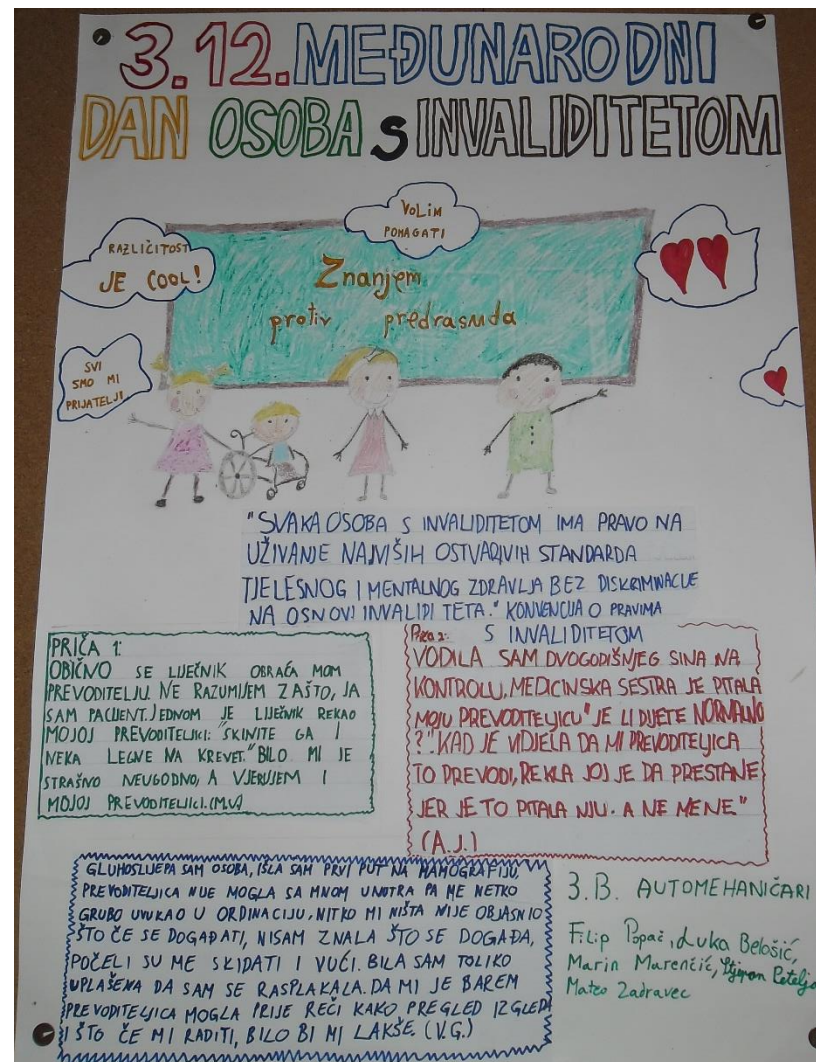 3.12. MEĐUNARODNI
DAN OSOBA S INVALIDITETOM
VOLIM
POMAGATI
RAZLIČITOST
JE COOL!
Znanjem
protiv predrasuda
SVI
SMO MI
PRIJATELJI
"SVAKA OSOBA S INVALIDITETOM IMA PRAVO NA
UŽIVANJE NAJVIŠIH OSTVARIVIH STANDARDA
TJELESNOG I MENTALNOG ZDRAVLJA BEZ DISKRIMINACIJE
NA OSNOVI INVALIDITETA." KONVENCIJA O PRAVIMA
S INVALIDITETOM
PRIČA 1:
OBIČNO SE LIJEČNIK OBRAĆA MOM
PREVODITELJU. NE RAZUMIJEM ZAŠTO, JA
SAM PACIJENT. JEDNOM JE LIJEČNIK REKAO
MOJOJ PREVODITELJICI: "SKINITE GA I
NEKA LEGNE NA KREVET." BILO MI JE
STRAŠNO NEUGODNO, A VJERUJEM I
MOJOJ PREVODITELJICI. (M.V.)
PRIČA 2:
VODILA SAM DVOGODIŠNJEG SINA NA
KONTROLU, MEDICINSKA SESTRA JE PITALA
MOJU PREVODITELJICU "JE LI DIJETE NORMALNO
?". KAD JE VIDJELA DA MI PREVODITELJICA
TO PREVODI, REKLA JOJ JE DA PRESTANE
JER JE TO PITALA NJU. A NE MENE"
(A.J.)
GLUHOSLIJEPA SAM OSOBA, IŠLA SAM PRVI PUT NA MAMOGRAFIJU,
PREVODITELJICA NIJE MOGLA SA MNOM UNUTRA PA ME NETKO
GRUBO UVUKAO U ORDINACIJU. NITKO MI NIŠTA NIJE OBJASNIO
ŠTO ČE SE DOGAĐATI, NISAM ZNALA ŠTO SE DOGAĐA,
POČELI SU ME SKIDATI I VUĆI. BILA SAM TOLIKO
UPLAŠENA DA SAM SE RASPLAKALA. DA MI JE BAREM
PREVODITELJICA MOGLA PRIJE REĆI KAKO PREGLED IZGLEDA
I ŠTO ČE MI RADITI, BILO BI MI LAKŠE. (V.G.)
3.B. AUTOMEHANIČARI
Filip Popač, Luka Belošić,
Marin Marenčić, Stjepan
Mateo Zadravec